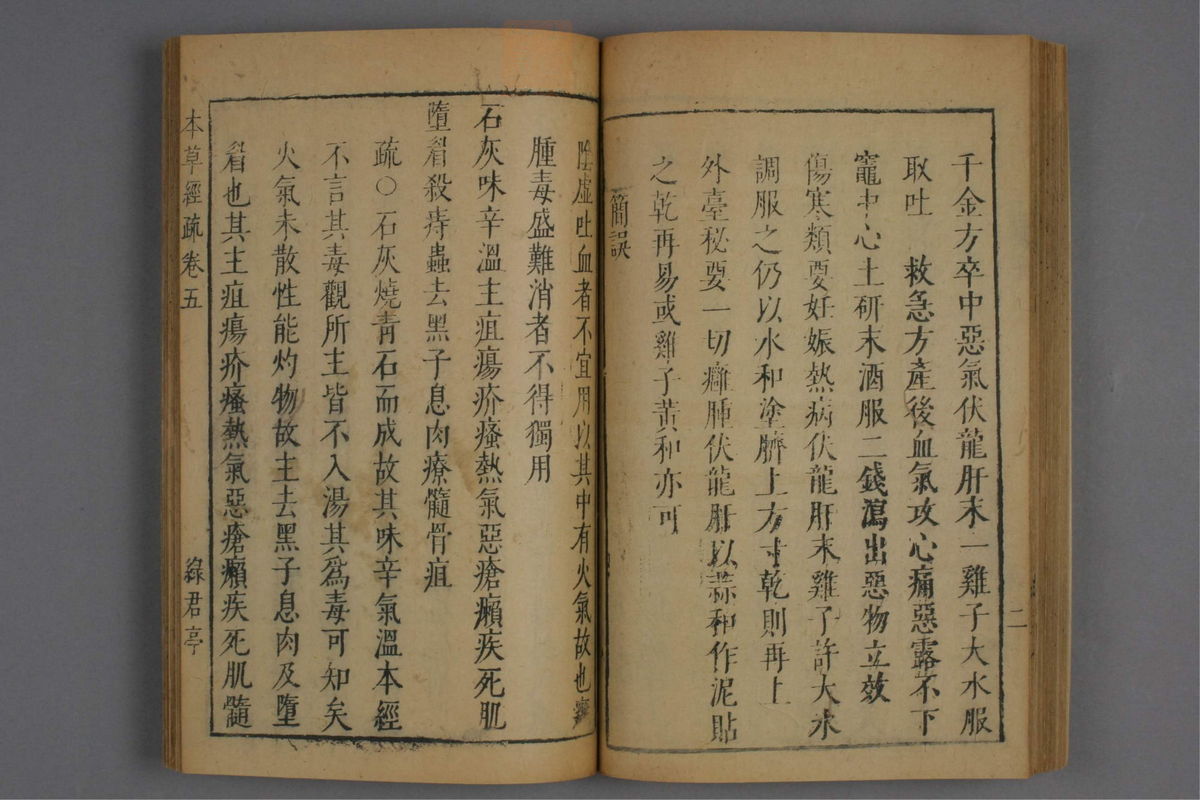 千金方卒中惡氣伏龍肝末一雞子大水服
取吐　救急方產後血氣攻心痛惡露不下
竈中心土研末酒服二錢瀉出惡物立效
傷寒類要妊娠熱病伏龍肝末雞子許大水
調服之仍以水和塗臍上方寸乾則再上
外臺秘要一切癰腫伏龍肝以蒜和作泥貼
之乾再易或雞子黃和亦可
簡誤
二
陰虛吐血者不宜用以其中有火氣故也癰
腫毒盛難消者不得獨用
石灰味辛溫主疽瘍疥瘙熱氣惡瘡癩疾死肌
墮眉殺痔蟲去黑子息肉療髓骨疽
疏○石灰燒青石而成故其味辛氣溫本經
不言其毒觀所主皆不入湯其爲毒可知矣
火氣未散性能灼物故主去黑子息肉及墮
眉也其主疽瘍疥瘙熱氣惡瘡癩疾死肌髓
本草經疏卷五
綠君亭